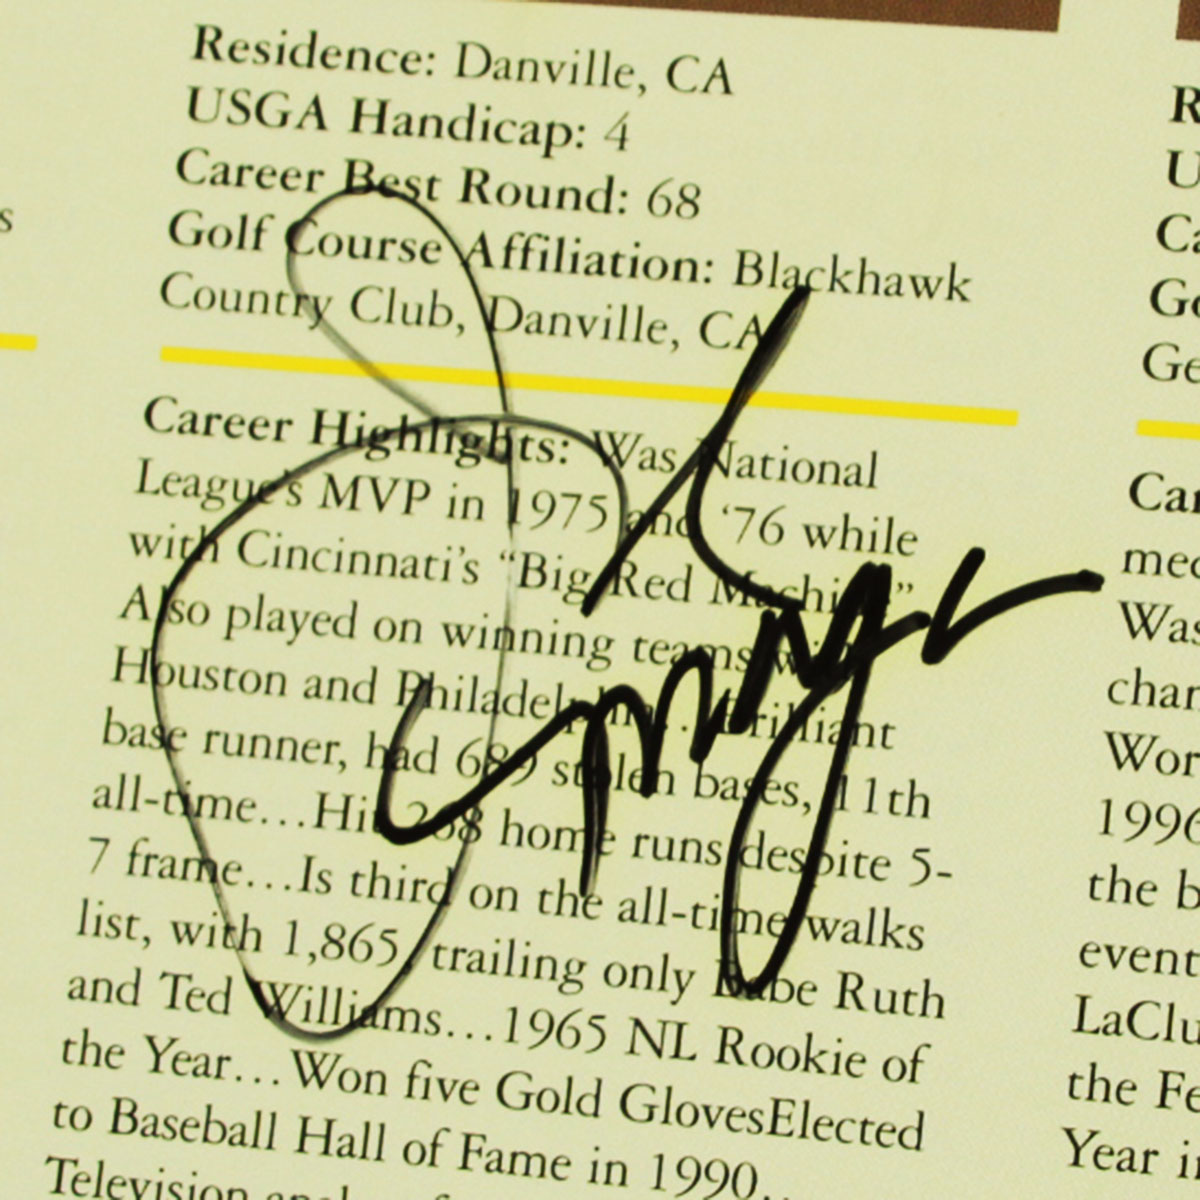 Residence: Danville, CA
USGA Handicap: 4
Career Best Round: 68
Golf Course Affiliation: Blackhawk
Country Club, Danville, CA
Career Highlights: Was National
League's MVP in 1975 and '76 while
with Cincinnati's “Big Red Machine”
Also played on winning teams with
Houston and Philadelphia...Brilliant
base runner, had 689 stolen bases, 11th
all-time...Hit 268 home runs despite 5-
7 frame...Is third on the all-time walks
list, with 1,865, trailing only Babe Ruth
and Ted Williams...1965 NL Rookie of
the Year...Won five Gold GlovesElected
to Baseball Hall of Fame in 1990...
Television
s
R
U
Ca
Go
Ge
Car
med
Was
char
Wor
1996
the b
event
LaClu
the Fe
Year in